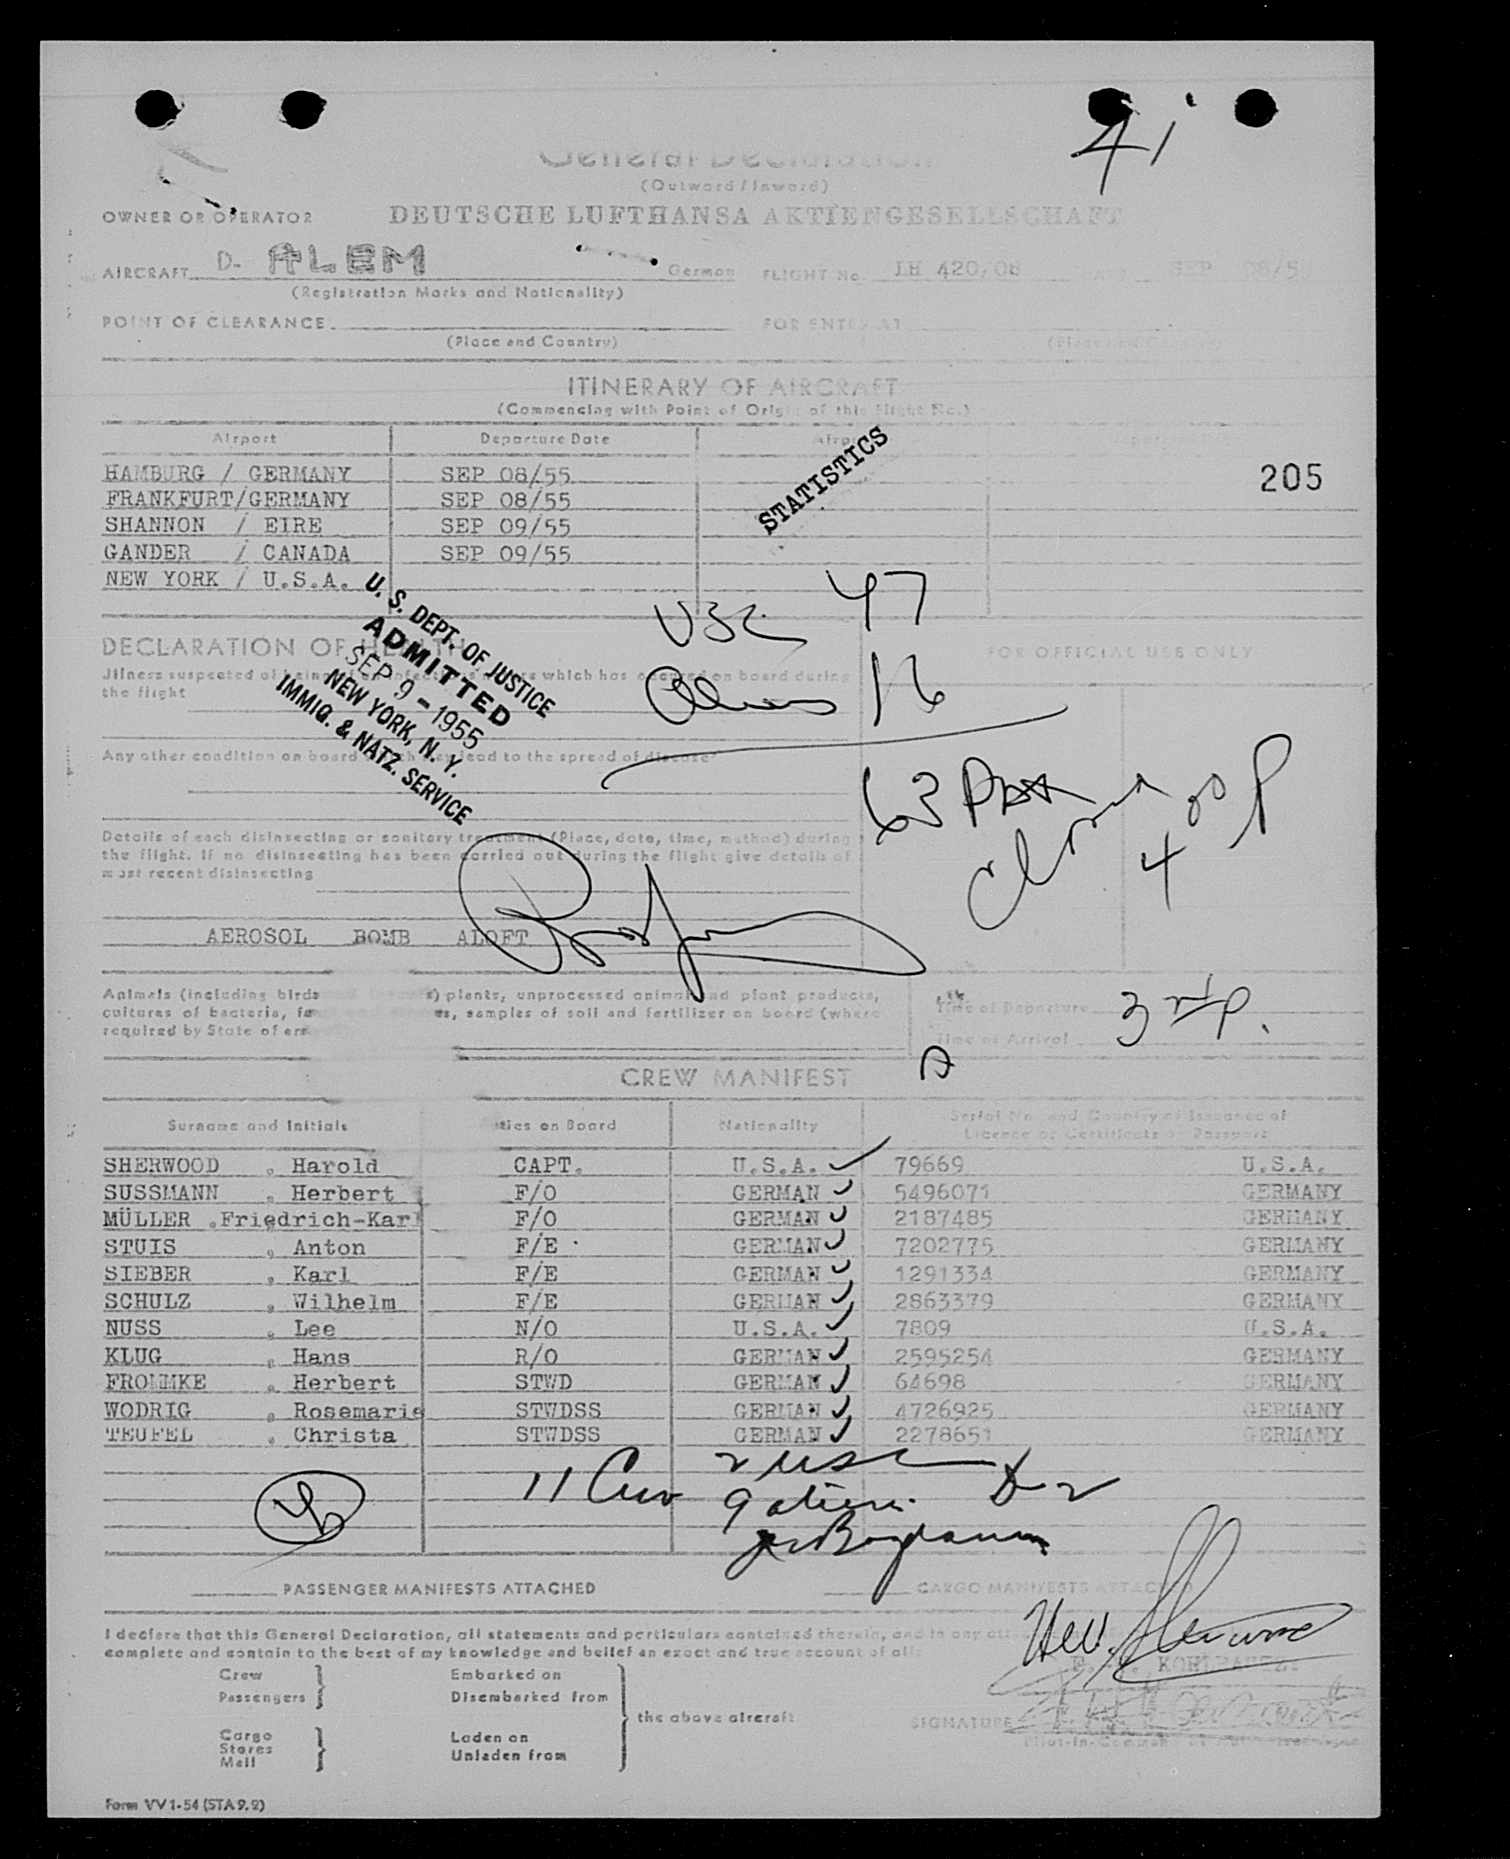 41
General Declaration
(Outward/Inward)
OWNER OR OPERATOR DEUTSCHE LUFTHANSA AKTIENGESELLSCHAFT
AIRCRAFT D- ALEM German FLIGHT No. LH 420/08 SEP 08/5
(Registration Marks and Nationality)
POINT OF CLEARANCE FOR ENTRY AT
(Place and Country) (Place and Country)
ITINERARY OF AIRCRAFT
(Commencing with Point of Origin of this Flight No.)
Airport Departure Date Airport
STATISTICS
205
HAMBURG / GERMANY SEP 08/55
FRANKFURT/GERMANY SEP 08/55
SHANNON / EIRE SEP 09/55
GANDER / CANADA SEP 09/55
NEW YORK / U.S.A.
U.S. DEPT. OF JUSTICE
ADMITTED
SEP 9 - 1955
NEW YORK, N.Y.
IMMIG. & NATZ. SERVICE
USC 47
Aliens 16
63 Pax
DECLARATION OF HEALTH FOR OFFICIAL USE ONLY
Illness suspected of being of an infectious which has occurred on board during
the flight
Any other condition on board which may lead to the spread of disease
Details of each disinsecting or sanitary treatment (Place, date, time, method) during
the flight. If no disinsecting has been carried out during the flight give details of
most recent disinsecting
4 00 P
AEROSOL BOMB ALOFT
Animals (including birds and insects) plants, unprocessed animal and plant products,
cultures of bacteria, samples of soil and fertilizer on board (where
required by State of
Time of Departure
Time of Arrival
A
CREW MANIFEST
Surname and Initials Duties on Board Nationality Serial No. and Country of Issuance of
Licence or Certificate or Passport
SHERWOOD , Harold CAPT. U.S.A. 79669 U.S.A.
SUSSMANN , Herbert F/O GERMAN 5496071 GERMANY
MÜLLER ,Friedrich-Karl F/O GERMAN 2187485 GERMANY
STUIS , Anton F/E GERMAN 7202775 GERMANY
SIEBER , Karl F/E GERMAN 1291334 GERMANY
SCHULZ , Wilhelm F/E GERMAN 2863379 GERMANY
NUSS , Lee N/O U.S.A. 7809 U.S.A.
KLUG , Hans R/O GERMAN 2595254 GERMANY
FROMMKE , Herbert STWD GERMAN 64698 GERMANY
WODRIG , Rosemarie STWDSS GERMAN 4726925 GERMANY
TEUFEL , Christa STWDSS GERMAN 2278651 GERMANY
11 Crew 2 USC
9 aliens
PASSENGER MANIFESTS ATTACHED CARGO MANIFESTS ATTACHED
I declare that this General Declaration, all statements and particulars contained therein, and in any
complete and contain to the best of my knowledge and belief an exact and true account of all:
Crew Embarked on
Passengers Disembarked from
the above aircraft
SIGNATURE
Cargo Laden on
Stores
Mail Unladen from
Form VV 1-54 (STA 9.2)